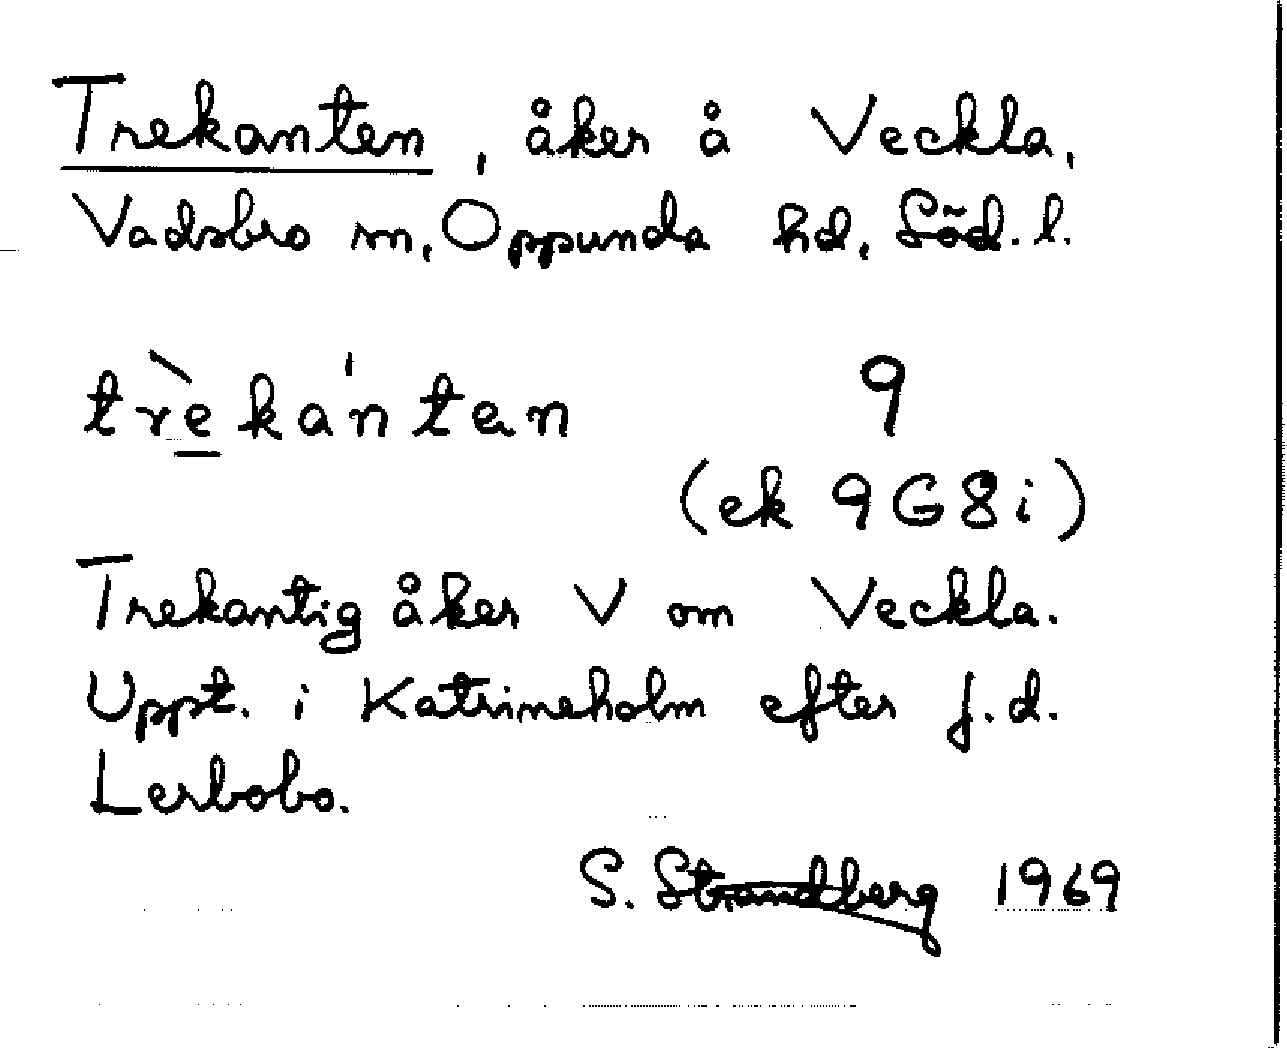 Trekanten, åker å Veckla,
Vadsbro sn, Oppunda hd, Söd. l.
trè̱ka'nten 9
(ek 9G8i)
Trekantig åker V om Veckla.
Uppt. i Katrineholm efter f.d.
Lerbobo.
S. Strandberg 1969